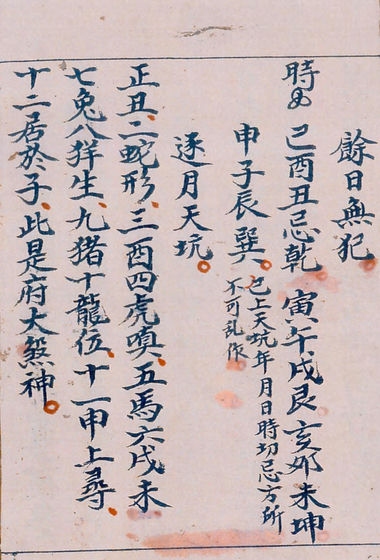 餘日無犯
時図 巳酉丑忌乾 寅午戌艮 亥卯未坤
申子辰巽 已上天坑年月日時切忌方所
不可乱作
逐月天坑
正丑二蛇形三酉四虎嗔五馬六戌未
七兔八羊生九猪十龍位十一申上尋
十二居於子此是府大煞神